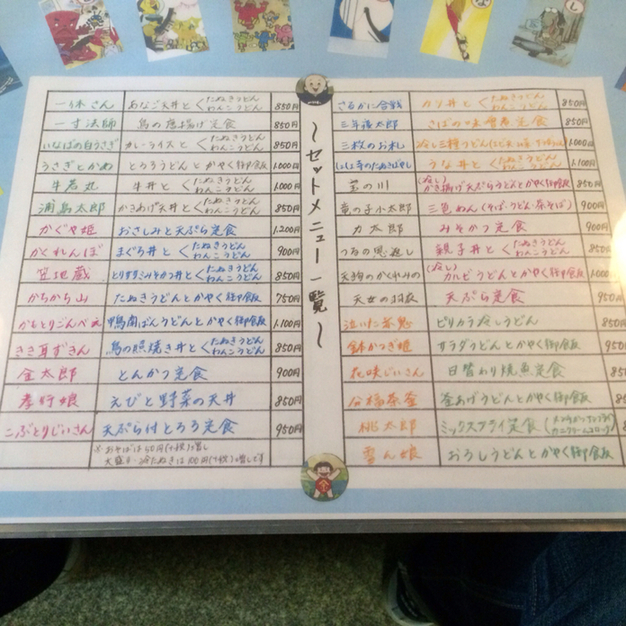 〜セットメニュー一覧〜
一休さん あなご天丼と たぬきうどん わんこうどん 850円
一寸法師 鳥の唐揚げ定食 850円
いなばの白うさぎ カレーライスと たぬきうどん わんこうどん 1,000円
うさぎとかめ とろろうどんとかやく御飯 1,000円
牛若丸 牛丼と たぬきうどん わんこうどん 1,000円
浦島太郎 かきあげ天丼と たぬきうどん わんこうどん 850円
かぐや姫 おさしみと天ぷら定食 1,200円
かくれんぼ まぐろ丼と たぬきうどん わんこうどん 900円
笠地蔵 とりすきみそかつ丼と たぬきうどん わんこうどん 850円
かちかち山 たぬきうどんとかやく御飯 750円
かもとりごんべえ 鴨南ばんうどんとかやく御飯 1,100円
きき耳ずきん 鳥の照焼き丼と たぬきうどん わんこうどん 850円
金太郎 とんかつ定食 900円
孝行娘 えびと野菜の天丼 850円
こぶとりじいさん 天ぷら付とろろ定食 950円
※おそばは50円(予税)増し
大盛り・冷たぬきは100円(予税)増しです
さるかに合戦 カツ丼と たぬきうどん わんこうどん 850円
三年寝太郎 さばのみそ煮定食 850円
三枚のお札 冷し三種うどん 1,000円
しょじょ寺のたぬきばやし うな丼と たぬきうどん わんこうどん 1,100円
(冷し) かき揚げ天ぷらうどんとかやく御飯 850円
竜の子小太郎 三色めん(そば・うどん・茶そば) 900円
力太郎 みそかつ定食 900円
つるの恩返し 親子丼と たぬきうどん わんこうどん 850円
天狗のかくれみの (冷し) カルビうどんとかやく御飯 1,000円
天女の羽衣 天ぷら定食 950円
泣いた赤鬼 ピリカラ冷しうどん 850
鉢かつぎ姫 サラダうどんとかやく御飯 950
花咲じいさん 日替わり焼魚定食 850
分福茶釜 釜あげうどんとかやく御飯 850
桃太郎 ミックスフライ定食
雪ん娘 おろしうどんとかやく御飯 850